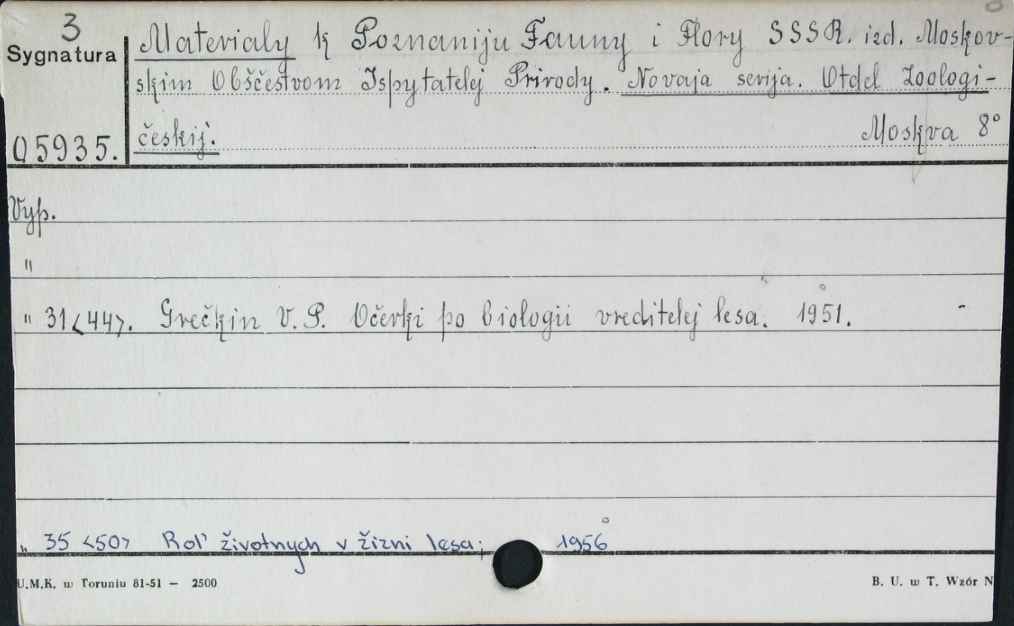 3
Sygnatura
05935.
Materialy k Poznaniju Fauny i Flory SSSR. izd. Moskov-
skim Obščestvom Ispytatelej Prirody. Novaja serija. Otdel Zoologi-
českij.
Moskva 8°
Vyp.
"
" 31<44>. Grečkin V. P. Očerki po biologii vreditelej lesa. 1951.
" 35 <50> Rol' životnych v žizni lesa; 1956
U.M.K. w Toruniu 81-51 — 2500
B. U. w T. Wzór N